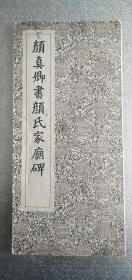 顏真卿書顏氏家廟碑